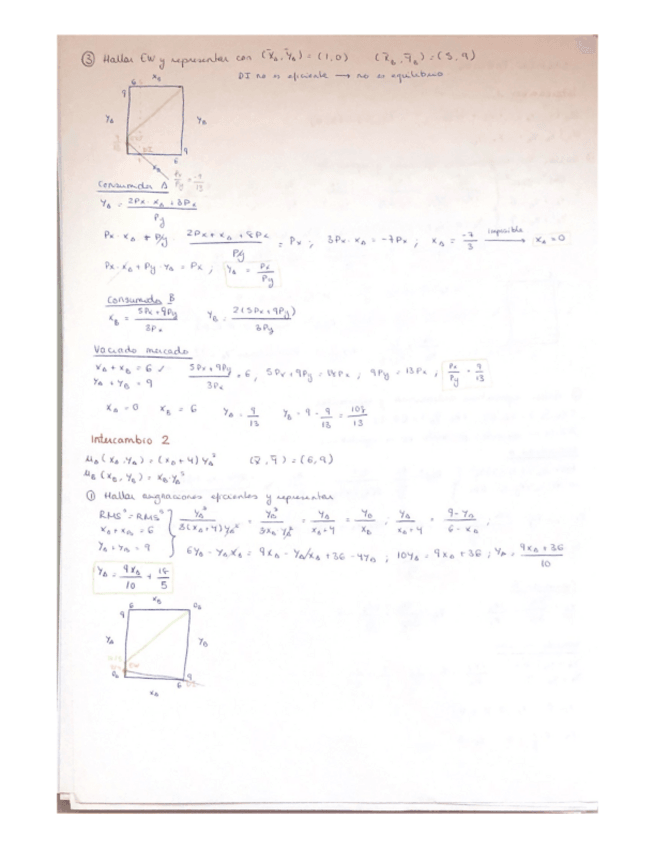 ③ Hallar EW y representar con (x̄A, ȳA) = (1,0) (x̄B, ȳB) = (5,9)
DI no es eficiente → no es equilibrio
6 xB
9
yA yB
6 9
xA
Px/Py = 9/13
Consumidor A
yA = (2Px · xA + 8Px)/Py
Px · xA + Py · (2Px · xA + 8Px)/Py = Px ; 3Px · xA = -7Px ; xA = -7/3 imposible → xA = 0
Px · xA + Py · yA = Px ; yA = Px/Py
Consumidor B
xB = (5Px + 9Py)/3Px yB = 2(5Px + 9Py)/3Py
Vaciado mercado
xA + xB = 6 ✓ (5Px + 9Py)/3Px = 6, 5Px + 9Py = 18Px, 9Py = 13Px, Px/Py = 9/13
yA + yB = 9
xA = 0 xB = 6 yA = 9/13 yB = 9 - 9/13 = 108/13
Intercambio 2
uA (xA, yA) = (xA + 4) yA³ (x̄, ȳ) = (6,9)
uB (xB, yB) = xB · yB³
① Hallar asignaciones eficientes y representar
RMSᴬ = RMSᴮ yA³/3(xA+4)yA² = yB³/3xB yB² = yA/(xA+4) = yB/xB ; yA/(xA+4) = (9-yA)/(6-xA),
xA + xB = 6
yA + yB = 9 6yA - yA xA = 9xA - yA xA + 36 - 4yA ; 10yA = 9xA + 36 ; yA = (9xA + 36)/10
yA = 9xA/10 + 18/5
6 xB OB
9
yA yB
EW
OA 6 9
xA